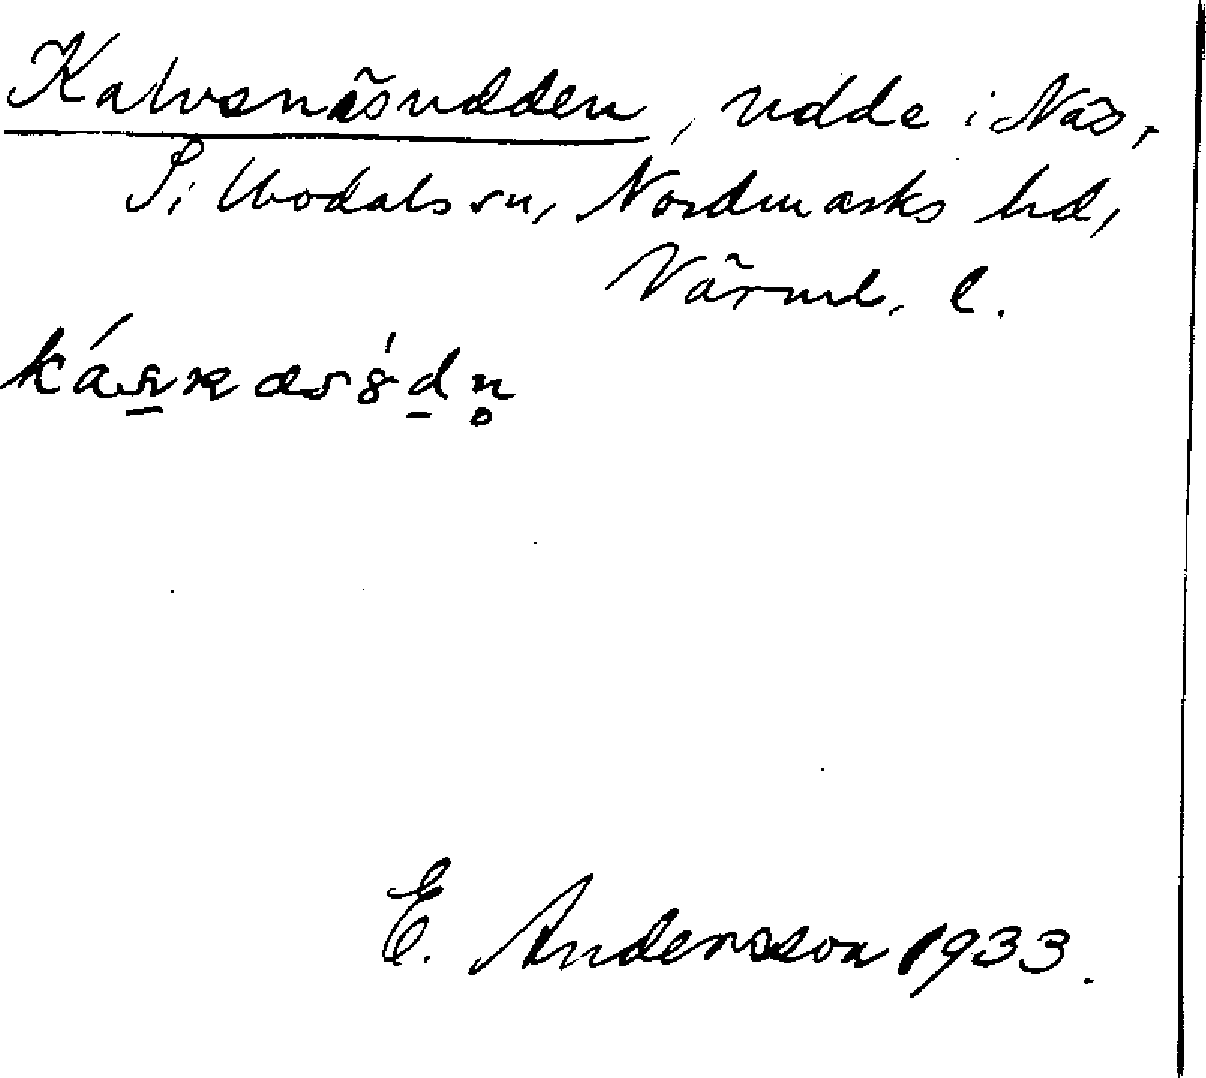 Kalvsnäsudden, udde i Näs,
Sillbodals sn, Nordmarks hd,
Värml. l.
E. Andersson 1933.